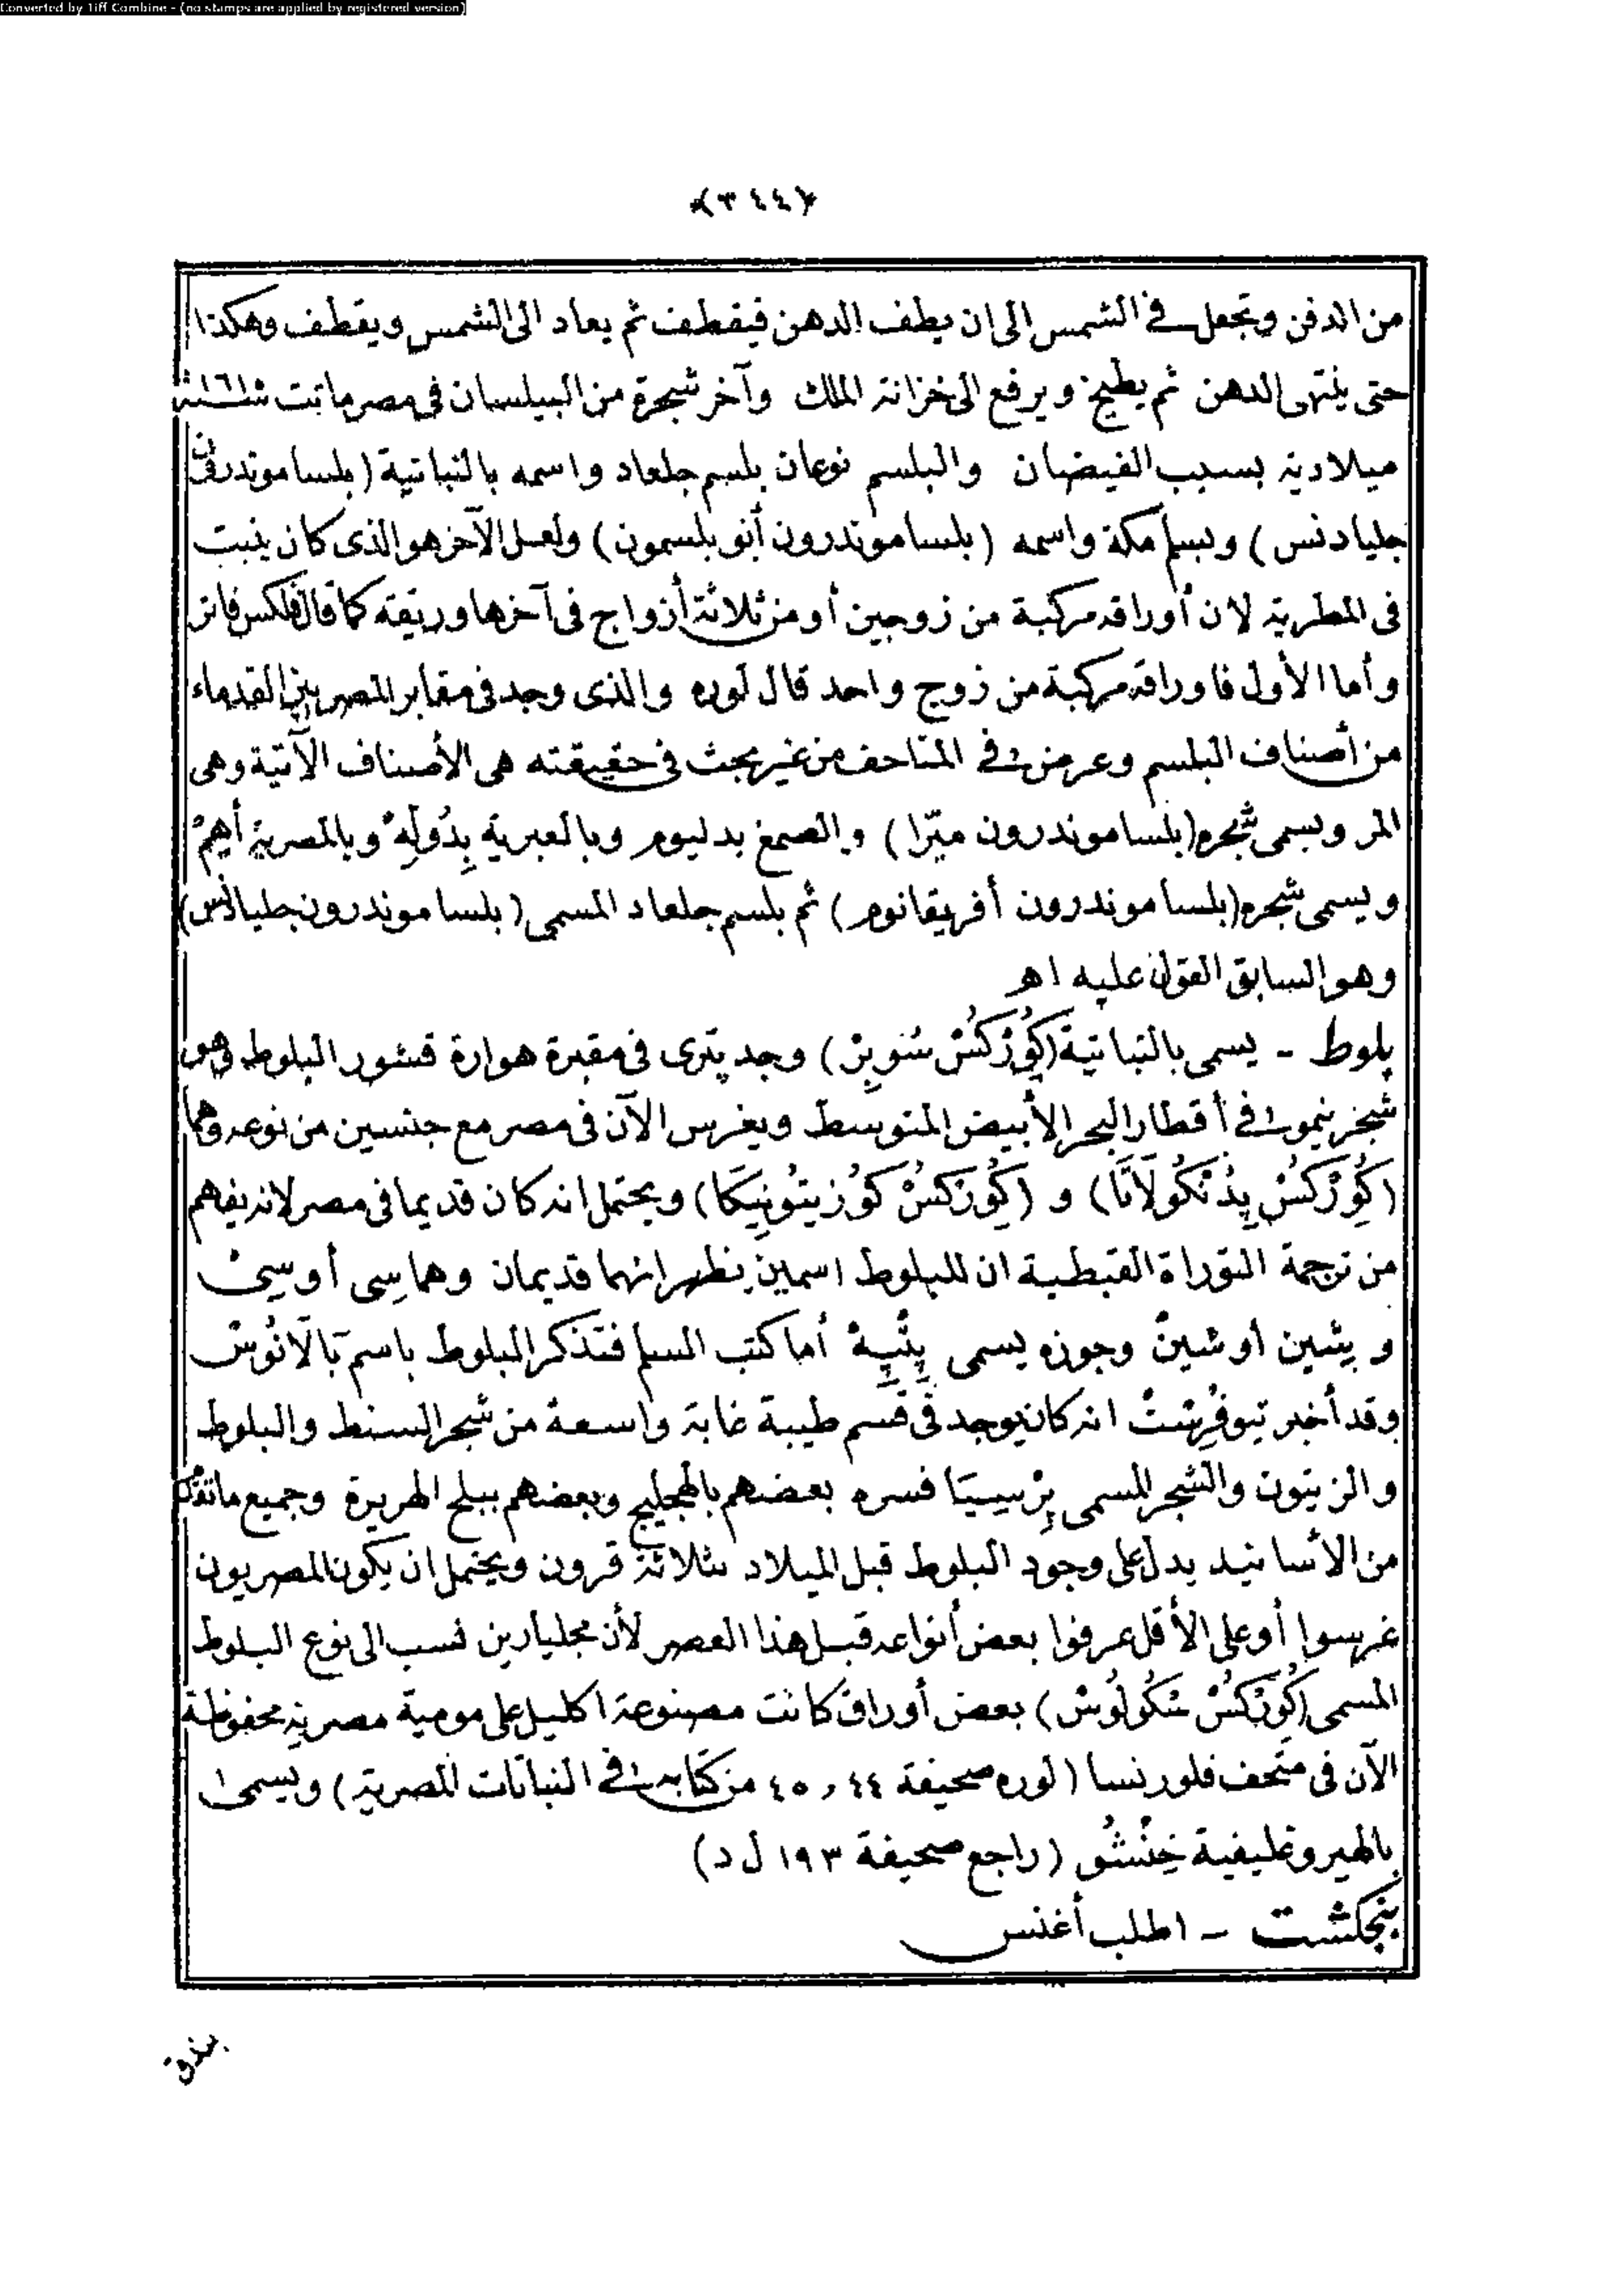 Converted by Tiff Combine - (no stamps are applied by registered version)
﴿٣٤٤﴾
من الدفن وتجعل في الشمس الى ان يطف الدهن فيقطف ثم يعاد الى الشمس ويقطف وهكذا
حتى ينتهى الدهن ثم يطبخ ويرفع الى خزانة الملك وآخر شجرة من البيلسان فى مصر ماتت سنة
ميلادية بسبب الفيضان والبلسم نوعان بلسم جلعاد واسمه بالنباتية (بلساموندرون
جليادنس) وبسلم مكة واسمه (بلساموندرون أبو بلسمون) ولعل الآخر هو الذى كان ينبت
فى المطرية لان أوراقه مركبة من زوجين أو من ثلاثة أزواج فى آخرها وريقة كما قال فلكس فانر
وأما الأول فاوراقه مركبة من زوج واحد قال لوره والذى وجد فى مقابر المصريين القدماء
من أصناف البلسم وعرض في المتاحف من غير بحث فى حقيقته هى الأصناف الآتية وهى
المر ويسمى شجره (بلساموندرون ميرّا) والصمغ بدليوم وبالعبرية بِدُولَه وبالمصرية أَهِمْ
ويسمى شجره (بلساموندرون أفريقانوم) ثم بلسم جلعاد المسمى (بلساموندرون جليادنس)
وهو السابق القول عليه اه
بلوط - يسمى بالنباتية (كُوِرْكُسْ سُوبِرْ) وجد پترى فى مقبرة هوارة قشور البلوط وهو
شجر ينمو في أقطار البحر الأبيض المتوسط ويغرس الآن فى مصر مع جنسين من نوعه وهما
(كُوِرْكُسْ پِدُنْكُولَاتَا) و (كُوِرْكُسْ كُوزيتُونِيكَا) ويحتمل انه كان قديما فى مصر لانه يفهم
من ترجمة التوراة القبطية ان للبلوط اسمين يظهر انهما قديمان وهما سِى أو سِى
و پشين أو شين وجوزه يسمى أما كتب السلم فتذكر البلوط باسم بَالَانُوسْ
وقد أخبر تيوفرست انه كان يوجد فى قسم طيبة غابة واسعة من شجر السنط والبلوط
والزيتون والشجر المسمى پِرْسِيَا فسره بعضهم بالهجليج وبعضهم ببلح الهريرة وجميع ما تقدم
من الأسانيد يدل على وجود البلوط قبل الميلاد بثلاثة قرون ويحتمل ان يكون المصريون
غرسوا أو على الأقل عرفوا بعض أنواعه قبل هذا العصر لأن مجليارين نسب الى نوع البلوط
المسمى (كُوِرْكُسْ سْكُولُوسْ) بعض أوراق كانت مصنوعة اكليل على مومية مصرية محفوظة
الآن فى متحف فلورنسا (لوره صحيفة ٤٤ و ٤٥ من كتابه في النباتات المصرية) ويسمى
بالهيروغليفية (راجع صحيفة ١٩٣ ل د)
بنجكشت - اطلب أغنس
بندق